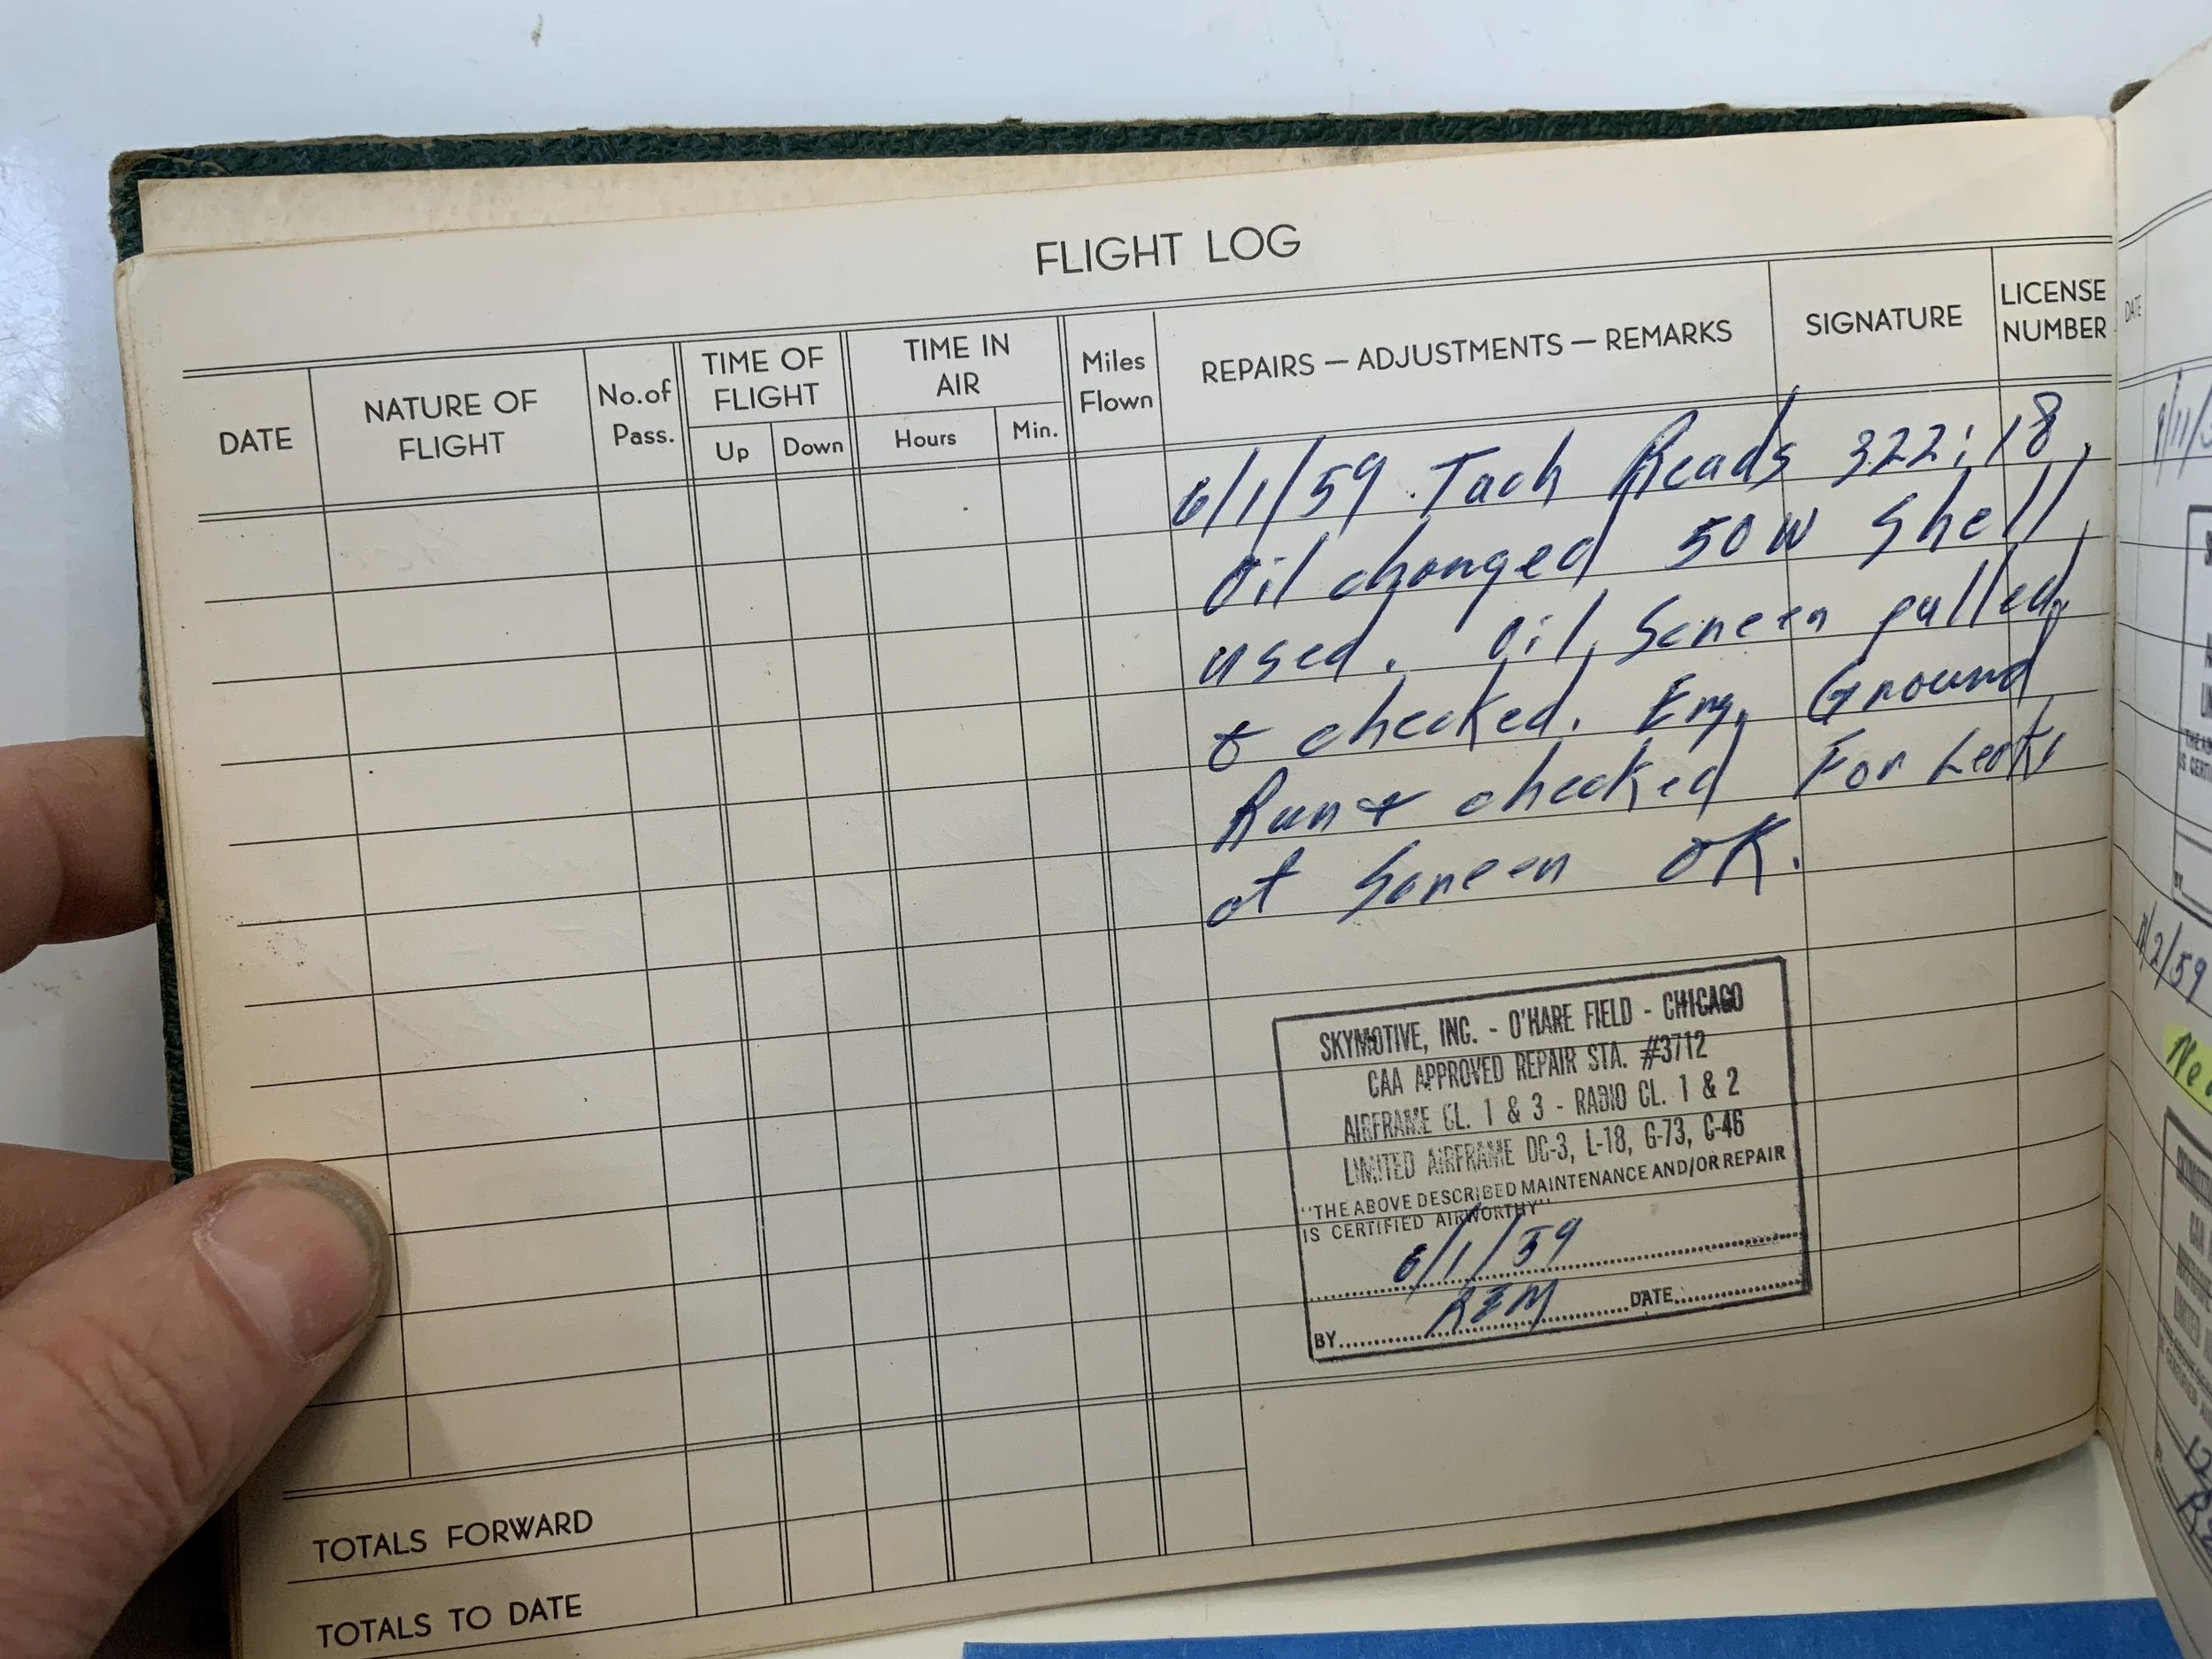 FLIGHT LOG
DATE
NATURE OF FLIGHT
No. of Pass.
TIME OF FLIGHT
Up
Down
TIME IN AIR
Hours
Min.
Miles Flown
REPAIRS — ADJUSTMENTS — REMARKS
SIGNATURE
LICENSE NUMBER
6/1/59 Tach Reads 322:18,
Oil changed 50W Shell
used. Oil Screen pulled
& checked. Eng. Ground
Run & checked For Leaks
at Screen OK.
SKYMOTIVE, INC. - O'HARE FIELD - CHICAGO
CAA APPROVED REPAIR STA. #3712
AIRFRAME CL. 1 & 3 - RADIO CL. 1 & 2
LIMITED AIRFRAME DC-3, L-18, G-73, C-46
"THE ABOVE DESCRIBED MAINTENANCE AND/OR REPAIR
IS CERTIFIED AIRWORTHY"
6/1/59
BY REM DATE
TOTALS FORWARD
TOTALS TO DATE
DATE
2/59